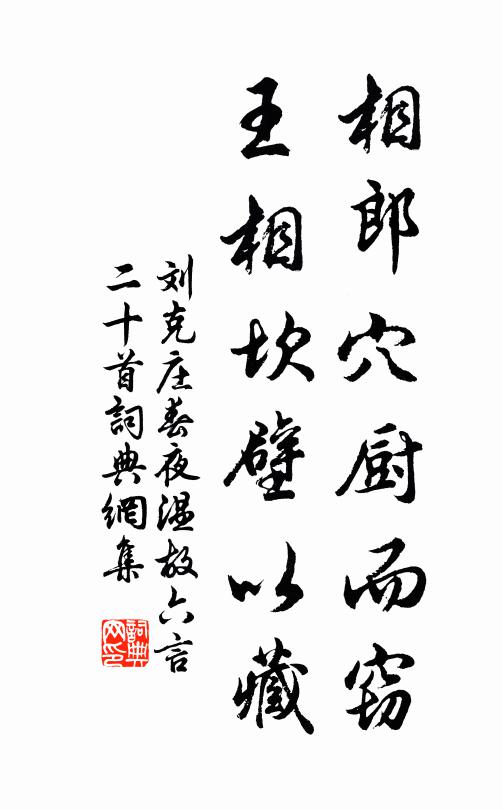 相郎穴厨而窃
王相坎壁以藏
刘克庄春夜温故六言
二十首詞典網集
詞典网印